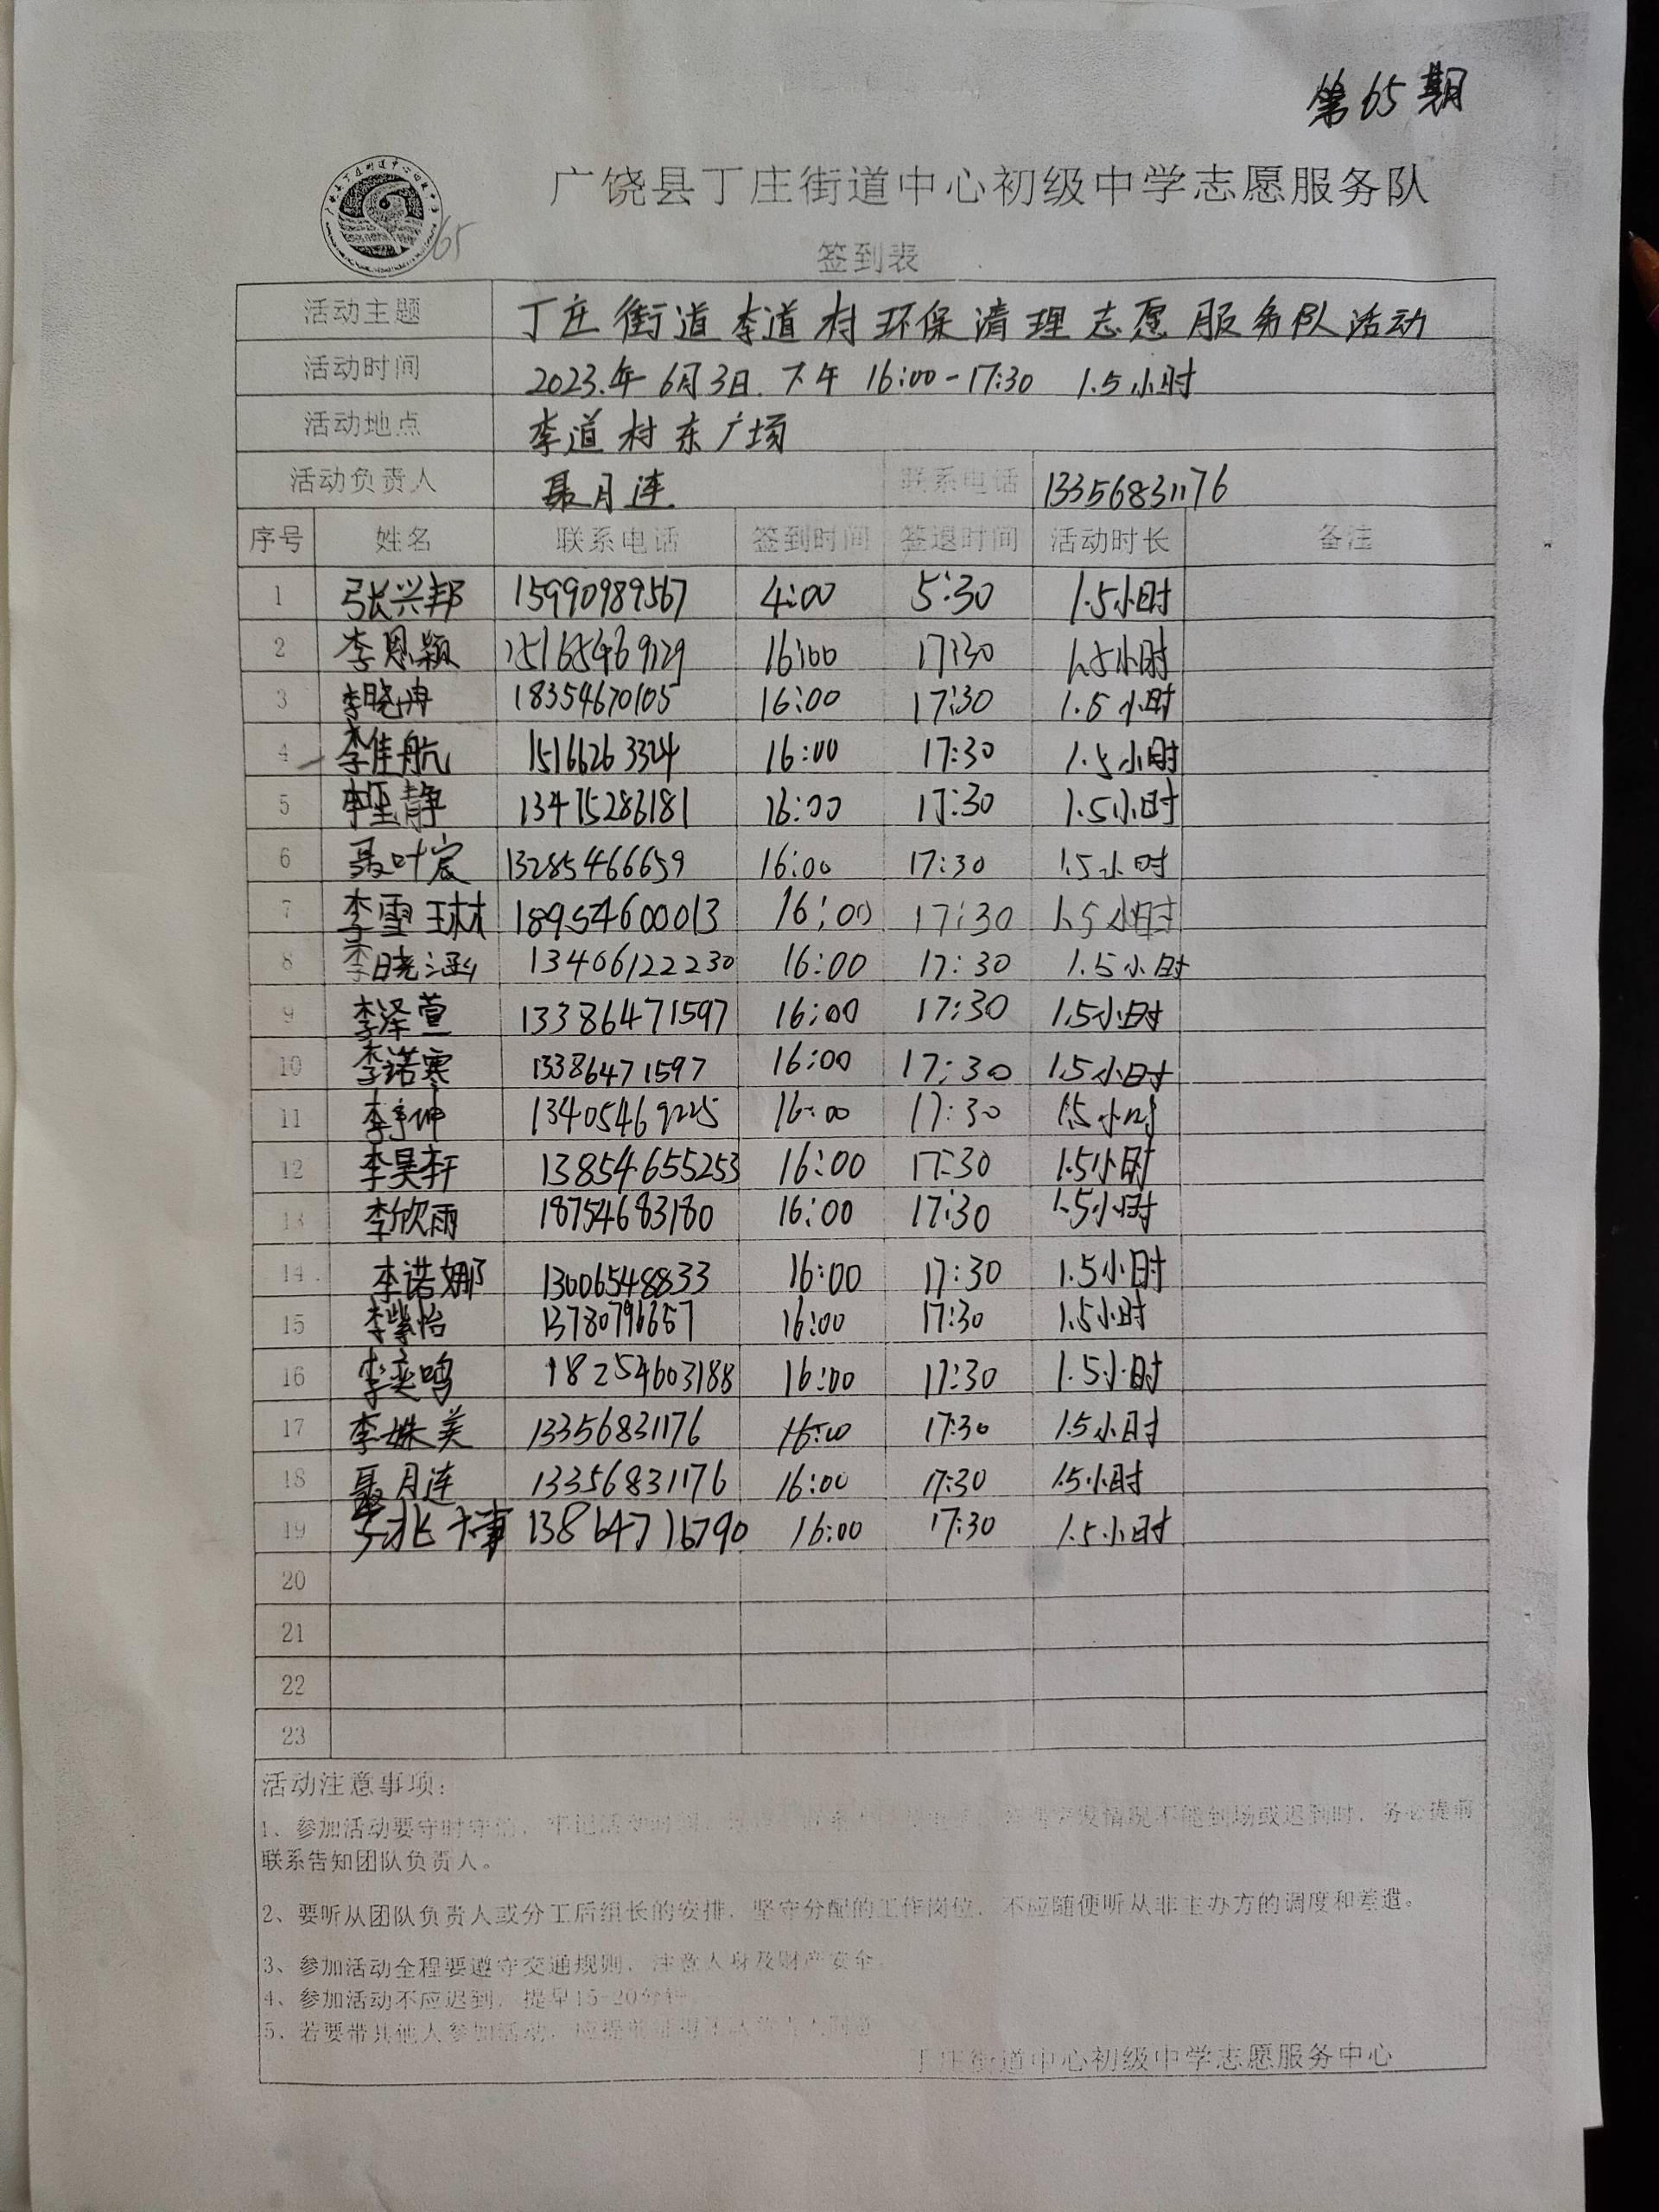 第65期
广饶县丁庄街道中心初级中学志愿服务队
65
签到表
活动主题 丁庄街道李道村环保清理志愿服务队活动
活动时间 2023.年6月3日.下午 16:00-17:30 1.5小时
活动地点 李道村东广场
活动负责人 聂月连 联系电话 13356831176
序号 姓名 联系电话 签到时间 签退时间 活动时长 备注
1 张兴邦 15990989567 4:00 5:30 1.5小时
2 李恩颖 16:00 17:30 1.5小时
3 李晓冉 18354670105 16:00 17:30 1.5小时
4 李佳航 15166263324 16:00 17:30 1.5小时
5 静 13475286181 16:00 17:30 1.5小时
6 聂叶宸 13285466659 16:00 17:30 1.5小时
7 李雪琳 18954600013 16:00 17:30 1.5小时
8 李晓涵 13406122230 16:00 17:30 1.5小时
9 李泽萱 13386471597 16:00 17:30 1.5小时
10 李诺寒 13386471597 16:00 17:30 1.5小时
11 李坤 13405469225 16:00 17:30 1.5小时
12 李昊轩 13854655253 16:00 17:30 1.5小时
13 李欣雨 18754683180 16:00 17:30 1.5小时
14 李诺娜 13006548833 16:00 17:30 1.5小时
15 李紫怡 13780796657 16:00 17:30 1.5小时
16 李奕鸣 18254603188 16:00 17:30 1.5小时
17 李姝美 13356831176 16:00 17:30 1.5小时
18 聂月连 13356831176 16:00 17:30 1.5小时
19 13864716790 16:00 17:30 1.5小时
20
21
22
23
活动注意事项：
1、参加活动要守时守信，牢记活动时间，发情况不能到场或迟到时，务必提前
联系告知团队负责人。
2、要听从团队负责人或分工后组长的安排，坚守分配的工作岗位，不应随便听从非主办方的调度和差遣。
3、参加活动全程要遵守交通规则，注意人身及财产安全。
4、参加活动不应迟到，提早15-20分钟
5、若要带其他人参加活动，应提前
丁庄街道中心初级中学志愿服务中心